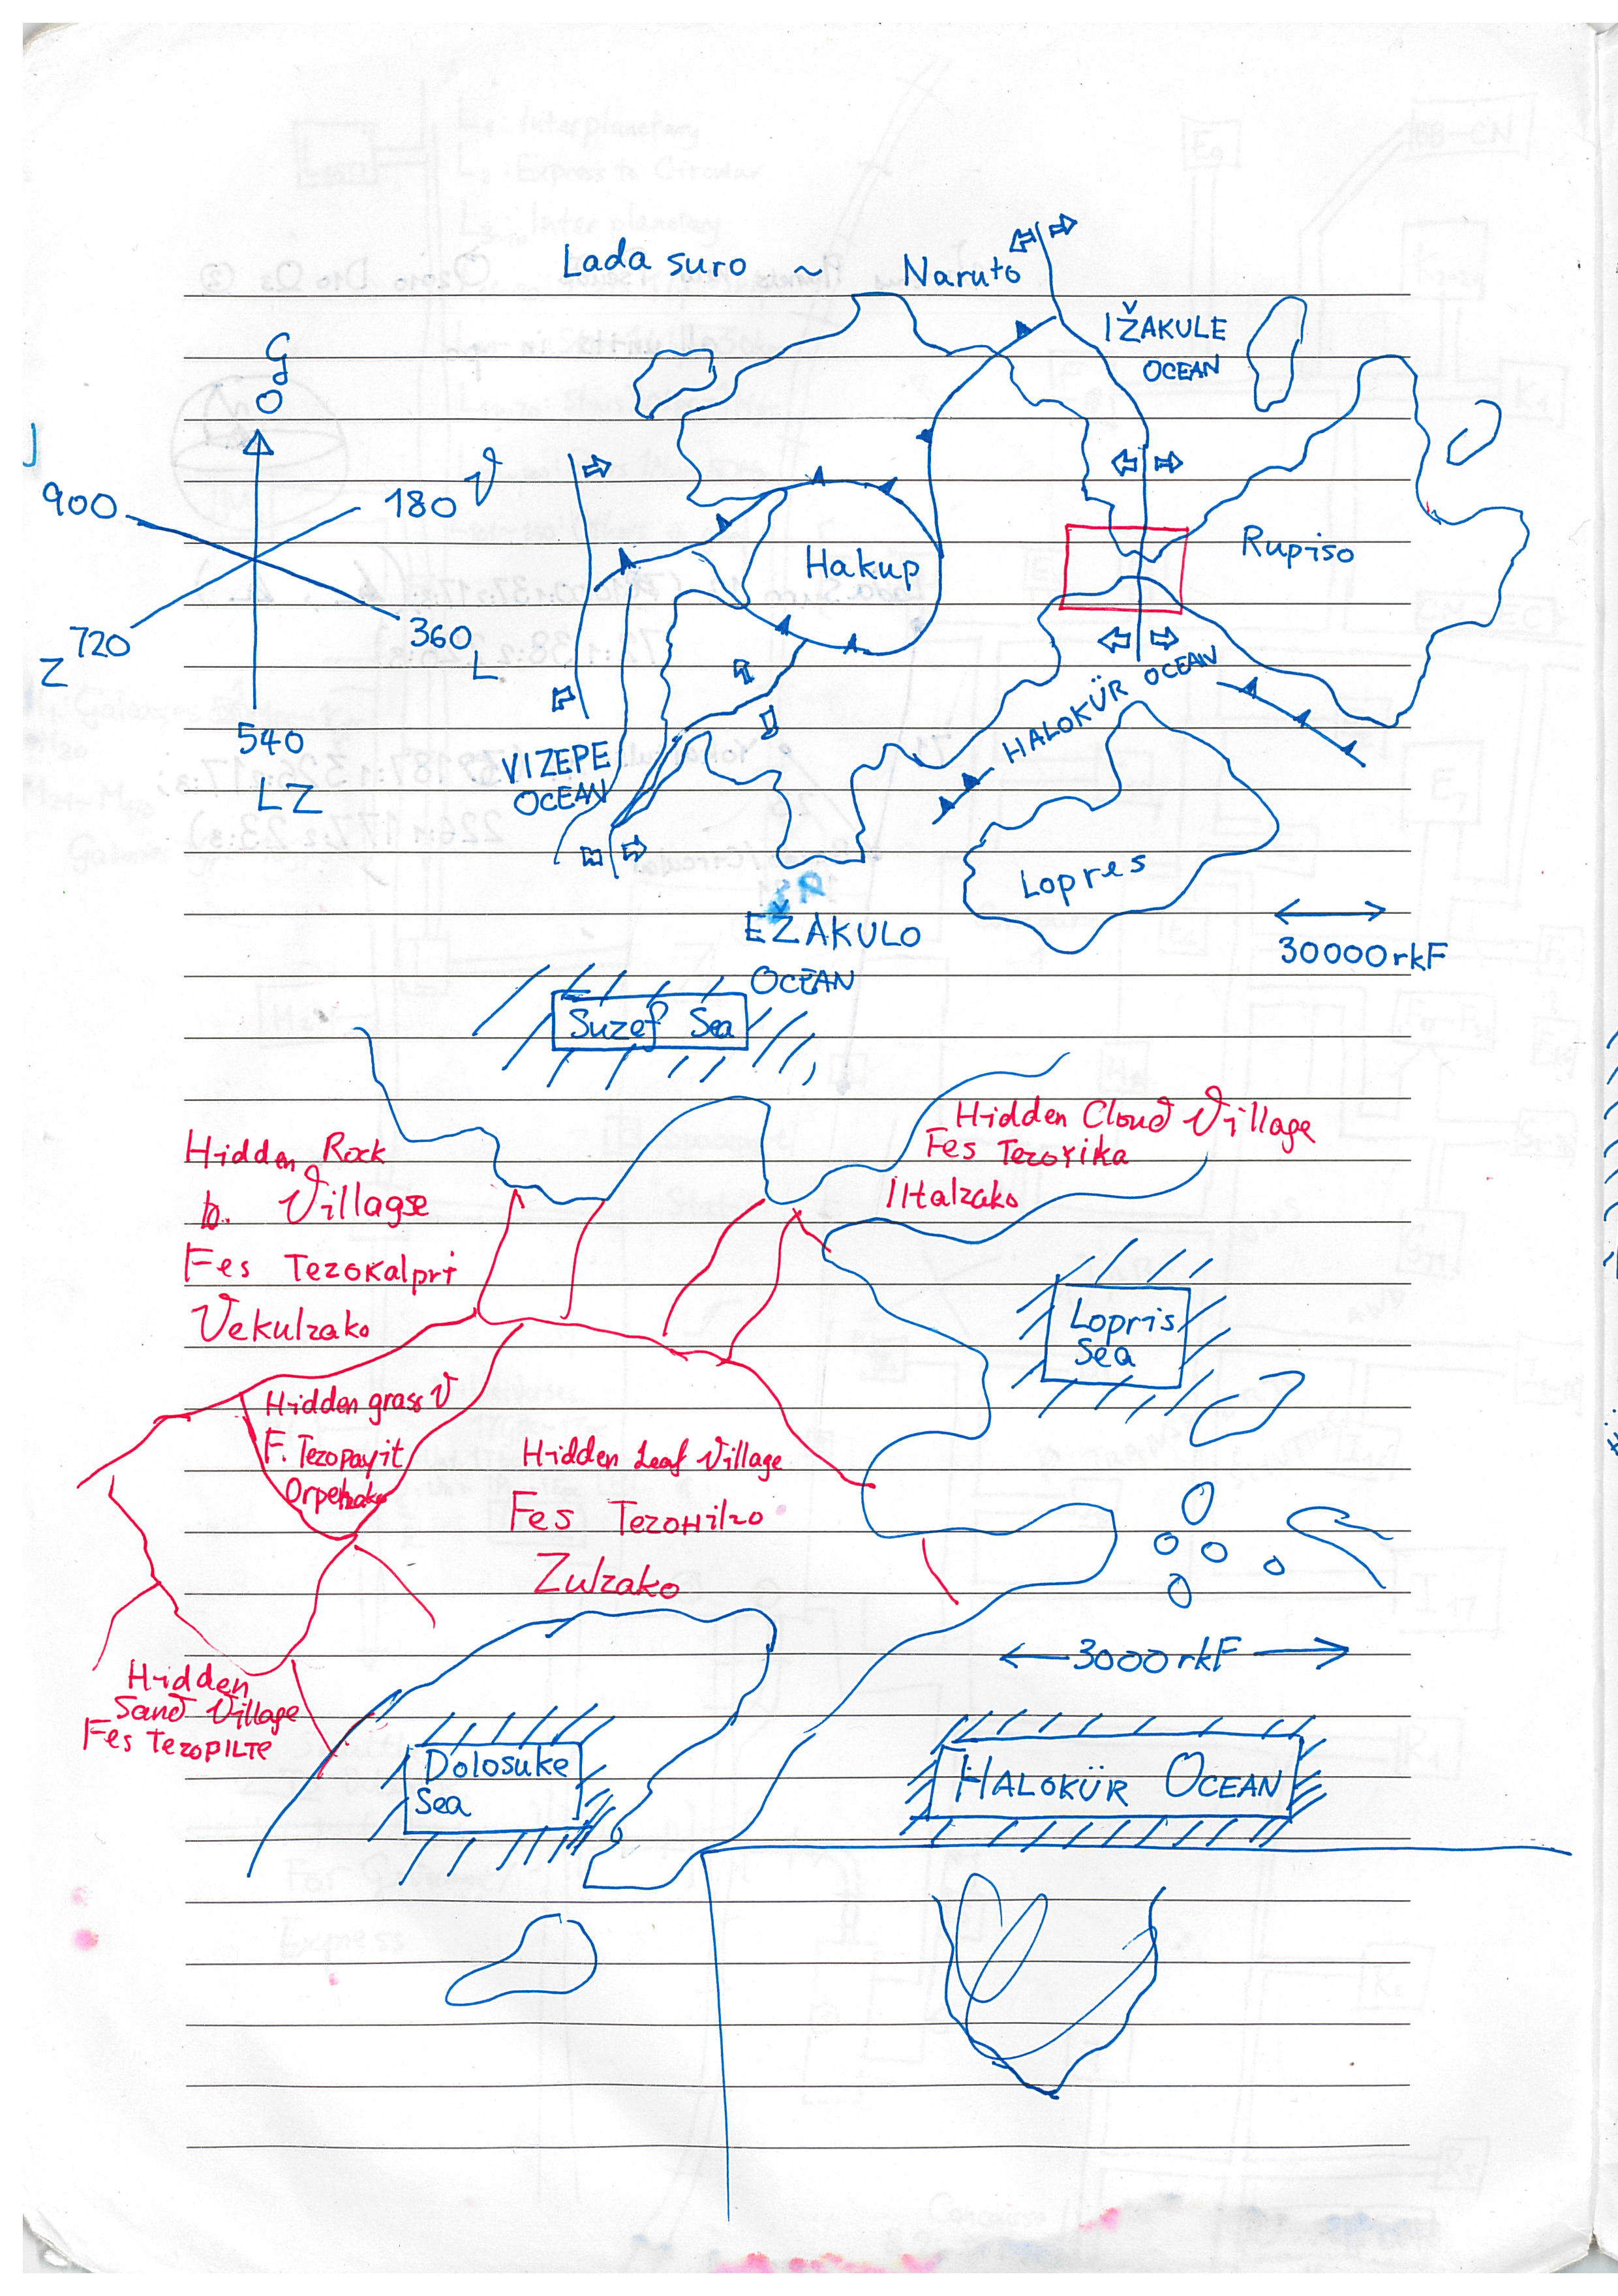 Lada suro ~ Naruto
IŽAKULE
OCEAN
G
0
900
180
720
Z
360
L
540
LZ
Hakup
Rupiso
VIZEPE
OCEAN
HALOKÜR OCEAN
Lopres
30000rkF
EŽAKULO
OCEAN
Suzef Sea
Hidden Rock
Village
Fes Tezokalpri
Vekulzako
Hidden Cloud Village
Fes Tezorika
Iltalzako
Lopris
Sea
Hidden grass V
F. Tezopayit
Hidden Leaf Village
Fes TezoHilzo
Zulzako
3000 rkF
Hidden
Sand Village
Fes TezoPILTE
Dolosuke
Sea
HALOKÜR OCEAN